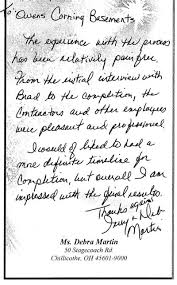 To: Owens Corning Basements
The experience with the process
has been relatively pain free.
From the initial interview with
Brad to the completion, the
contractors and other employees
were pleasant and professional
I would of liked to had a
more definite timeline for
completion, but overall I am
impressed with the final results.
Thanks again
Jerry & Deb
Martin
Ms. Debra Martin
50 Stagecoach Rd
Chillicothe, OH 45601-9000